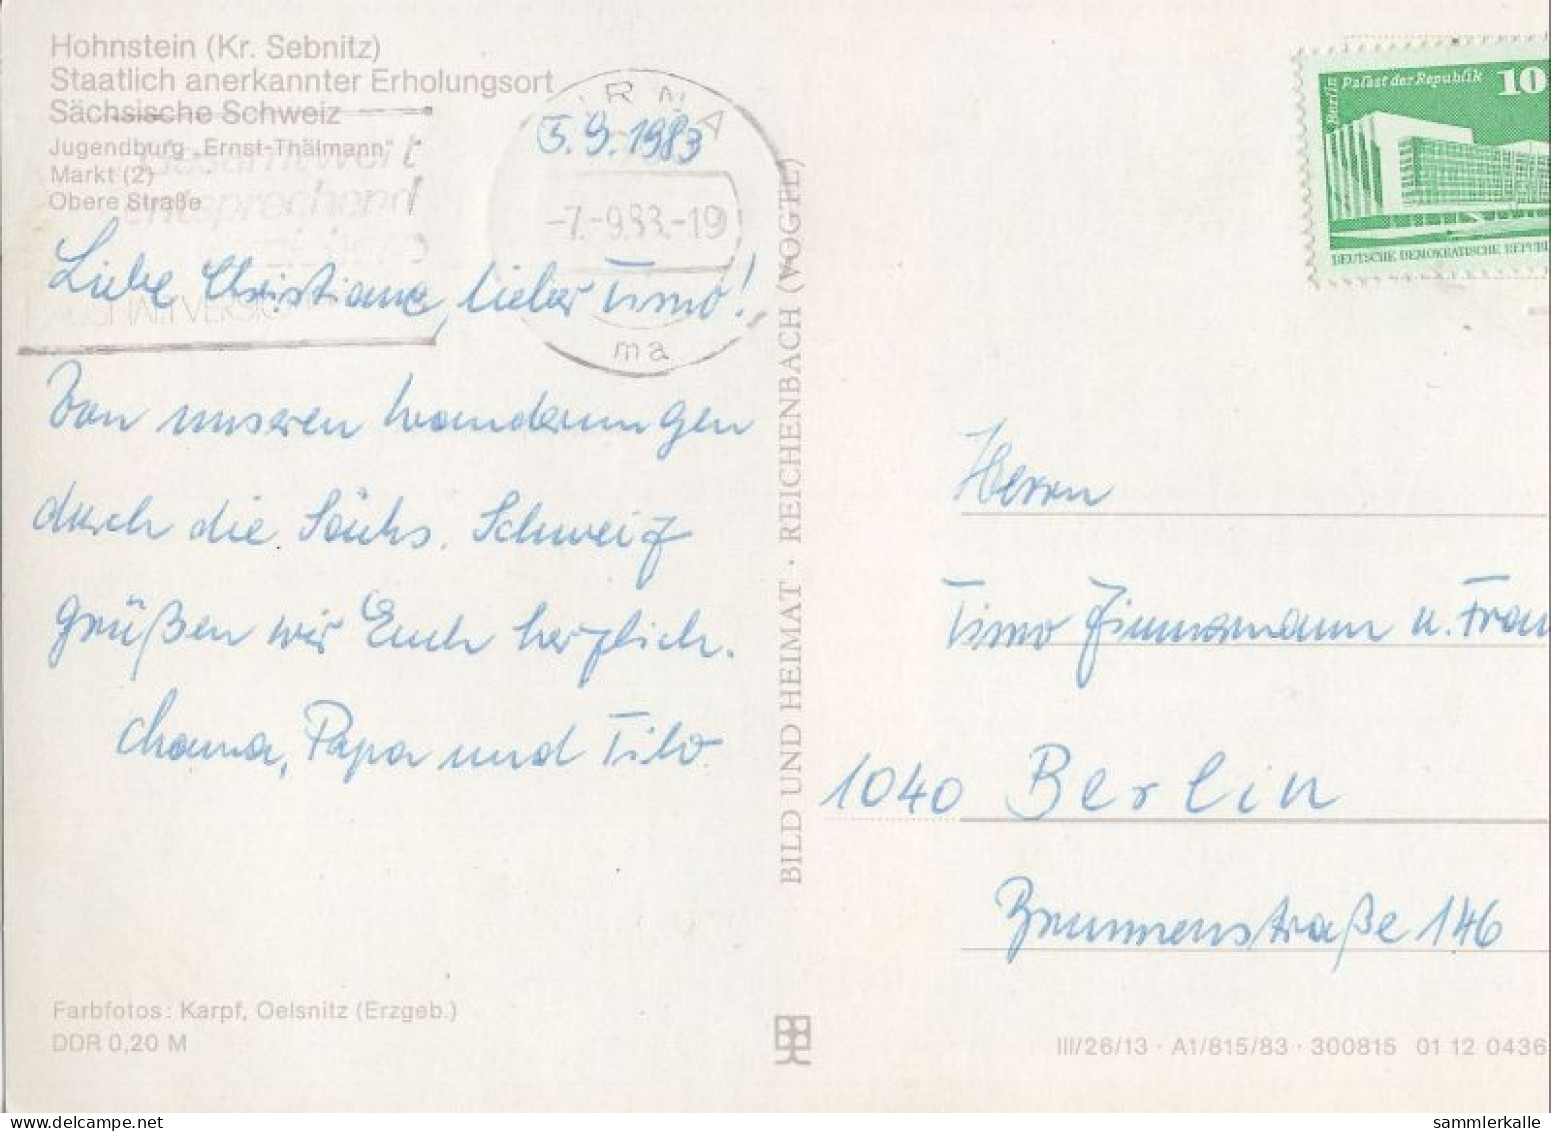 Hohnstein (Kr. Sebnitz)
Staatlich anerkannter Erholungsort
Sächsische Schweiz
Jugendburg „Ernst-Thälmann"
Markt (2)
Obere Straße
5.9.1983
-7.-9.83.-19
ma
entsprechend
Liebe Christiane, lieber Timo!
Von unseren Wanderungen
durch die Sächs. Schweiz
grüßen wir Euch herzlich.
Mama, Papa und Tilo.
Farbfotos: Karpf, Oelsnitz (Erzgeb.)
DDR 0,20 M
BILD UND HEIMAT · REICHENBACH (VOGTL)
Berlin
Palast der Republik 10
DEUTSCHE DEMOKRATISCHE REPUBL
Herrn
Timo Zimmermann u. Frau
1040 Berlin
Brunnenstraße 146
III/26/13 · A1/815/83 · 300815 01 12 0436
sammlerkalle